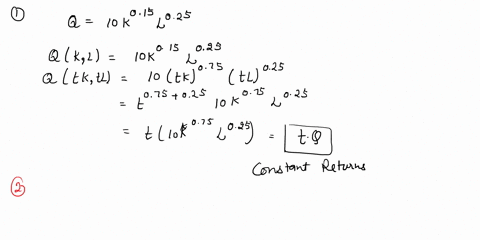 ① Q = 10K^0.15 L^0.25
Q(K,L) = 10K^0.15 L^0.25
Q(tK,tL) = 10(tK)^0.75 (tL)^0.25
= t^0.75+0.25 10K^0.75 L^0.25
= t(10K^0.75 L^0.25) = t.Q
Constant Returns
②